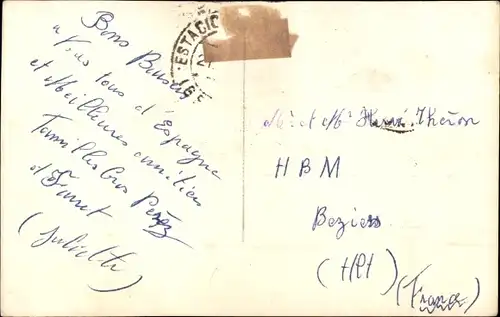 Bons Baisers
a vous tous d'Espagne
et Meilleures amitiés
Famille Gros Perez
et
(Juliette)
ESTACIO
Mr et Me Henri Théron
H B M
Beziers
(Hlt)
(France)